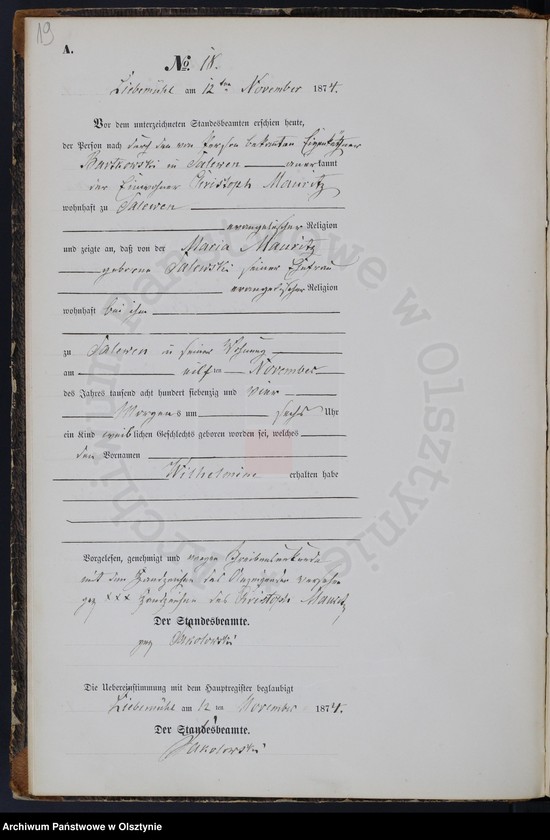 19
A.
No. 18.
Liebemühl am 12ten November 1874.
Vor dem unterzeichneten Standesbeamten erschien heute,
der Person nach durch den von Person bekannten Eigenkäthner
Bartkowski in Taleren anerkannt
der Einwohner Christoph Mauritz
wohnhaft zu Taleren
evangelischer Religion
und zeigte an, daß von der Maria Mauritz
geborene Salewski seiner Ehefrau
evangelischer Religion
wohnhaft bei ihm
zu Taleren in seiner Wohnung
am elften November
des Jahres tausend acht hundert siebenzig und vier
Morgens um sechs Uhr
ein Kind weiblichen Geschlechts geboren worden sei, welches
den Vornamen
Wilhelmine erhalten habe
Vorgelesen, genehmigt und wegen Schreibensunkunde
mit dem Handzeichen des Anzeigenden versehen
gez XXX Handzeichen des Christoph Mauritz
Der Standesbeamte.
gez Sakolowski
Die Uebereinstimmung mit dem Hauptregister beglaubigt
Liebemühl am 12 ten November 1874.
Der Standesbeamte.
Sakolowski
Archiwum Państwowe w Olsztynie
Archiwum Państwowe w Olsztynie